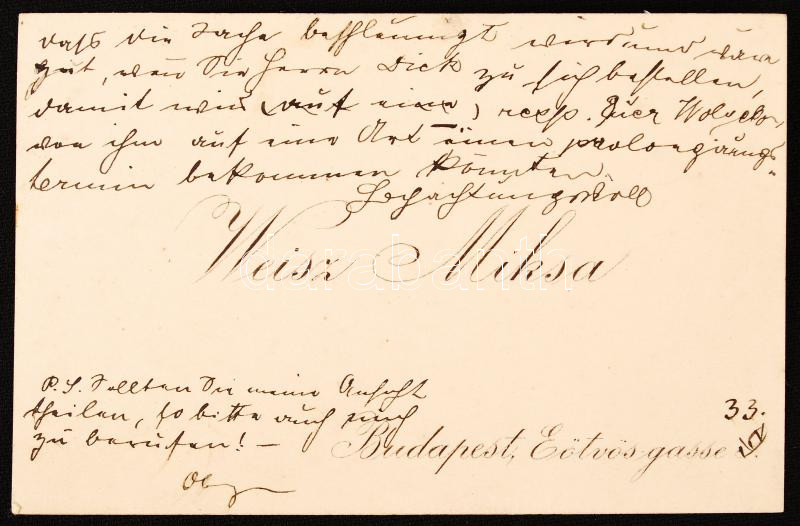 daß die Sache beschleunigt wird und wäre
gut, wen̄ Sie Herrn Dick zu sich bestellen,
damit wir (auf eine) resp.
von ihm auf eine Art einen prolongirungs-
termin bekommen könnten.
Hochachtungsvoll
Weisz Miksa
darabanth
P.S. Sollten Sie meine Ansicht
theilen, so bitte auch mich
zu berufen! —
33.
Budapest, Eötvös-gasse
Obg